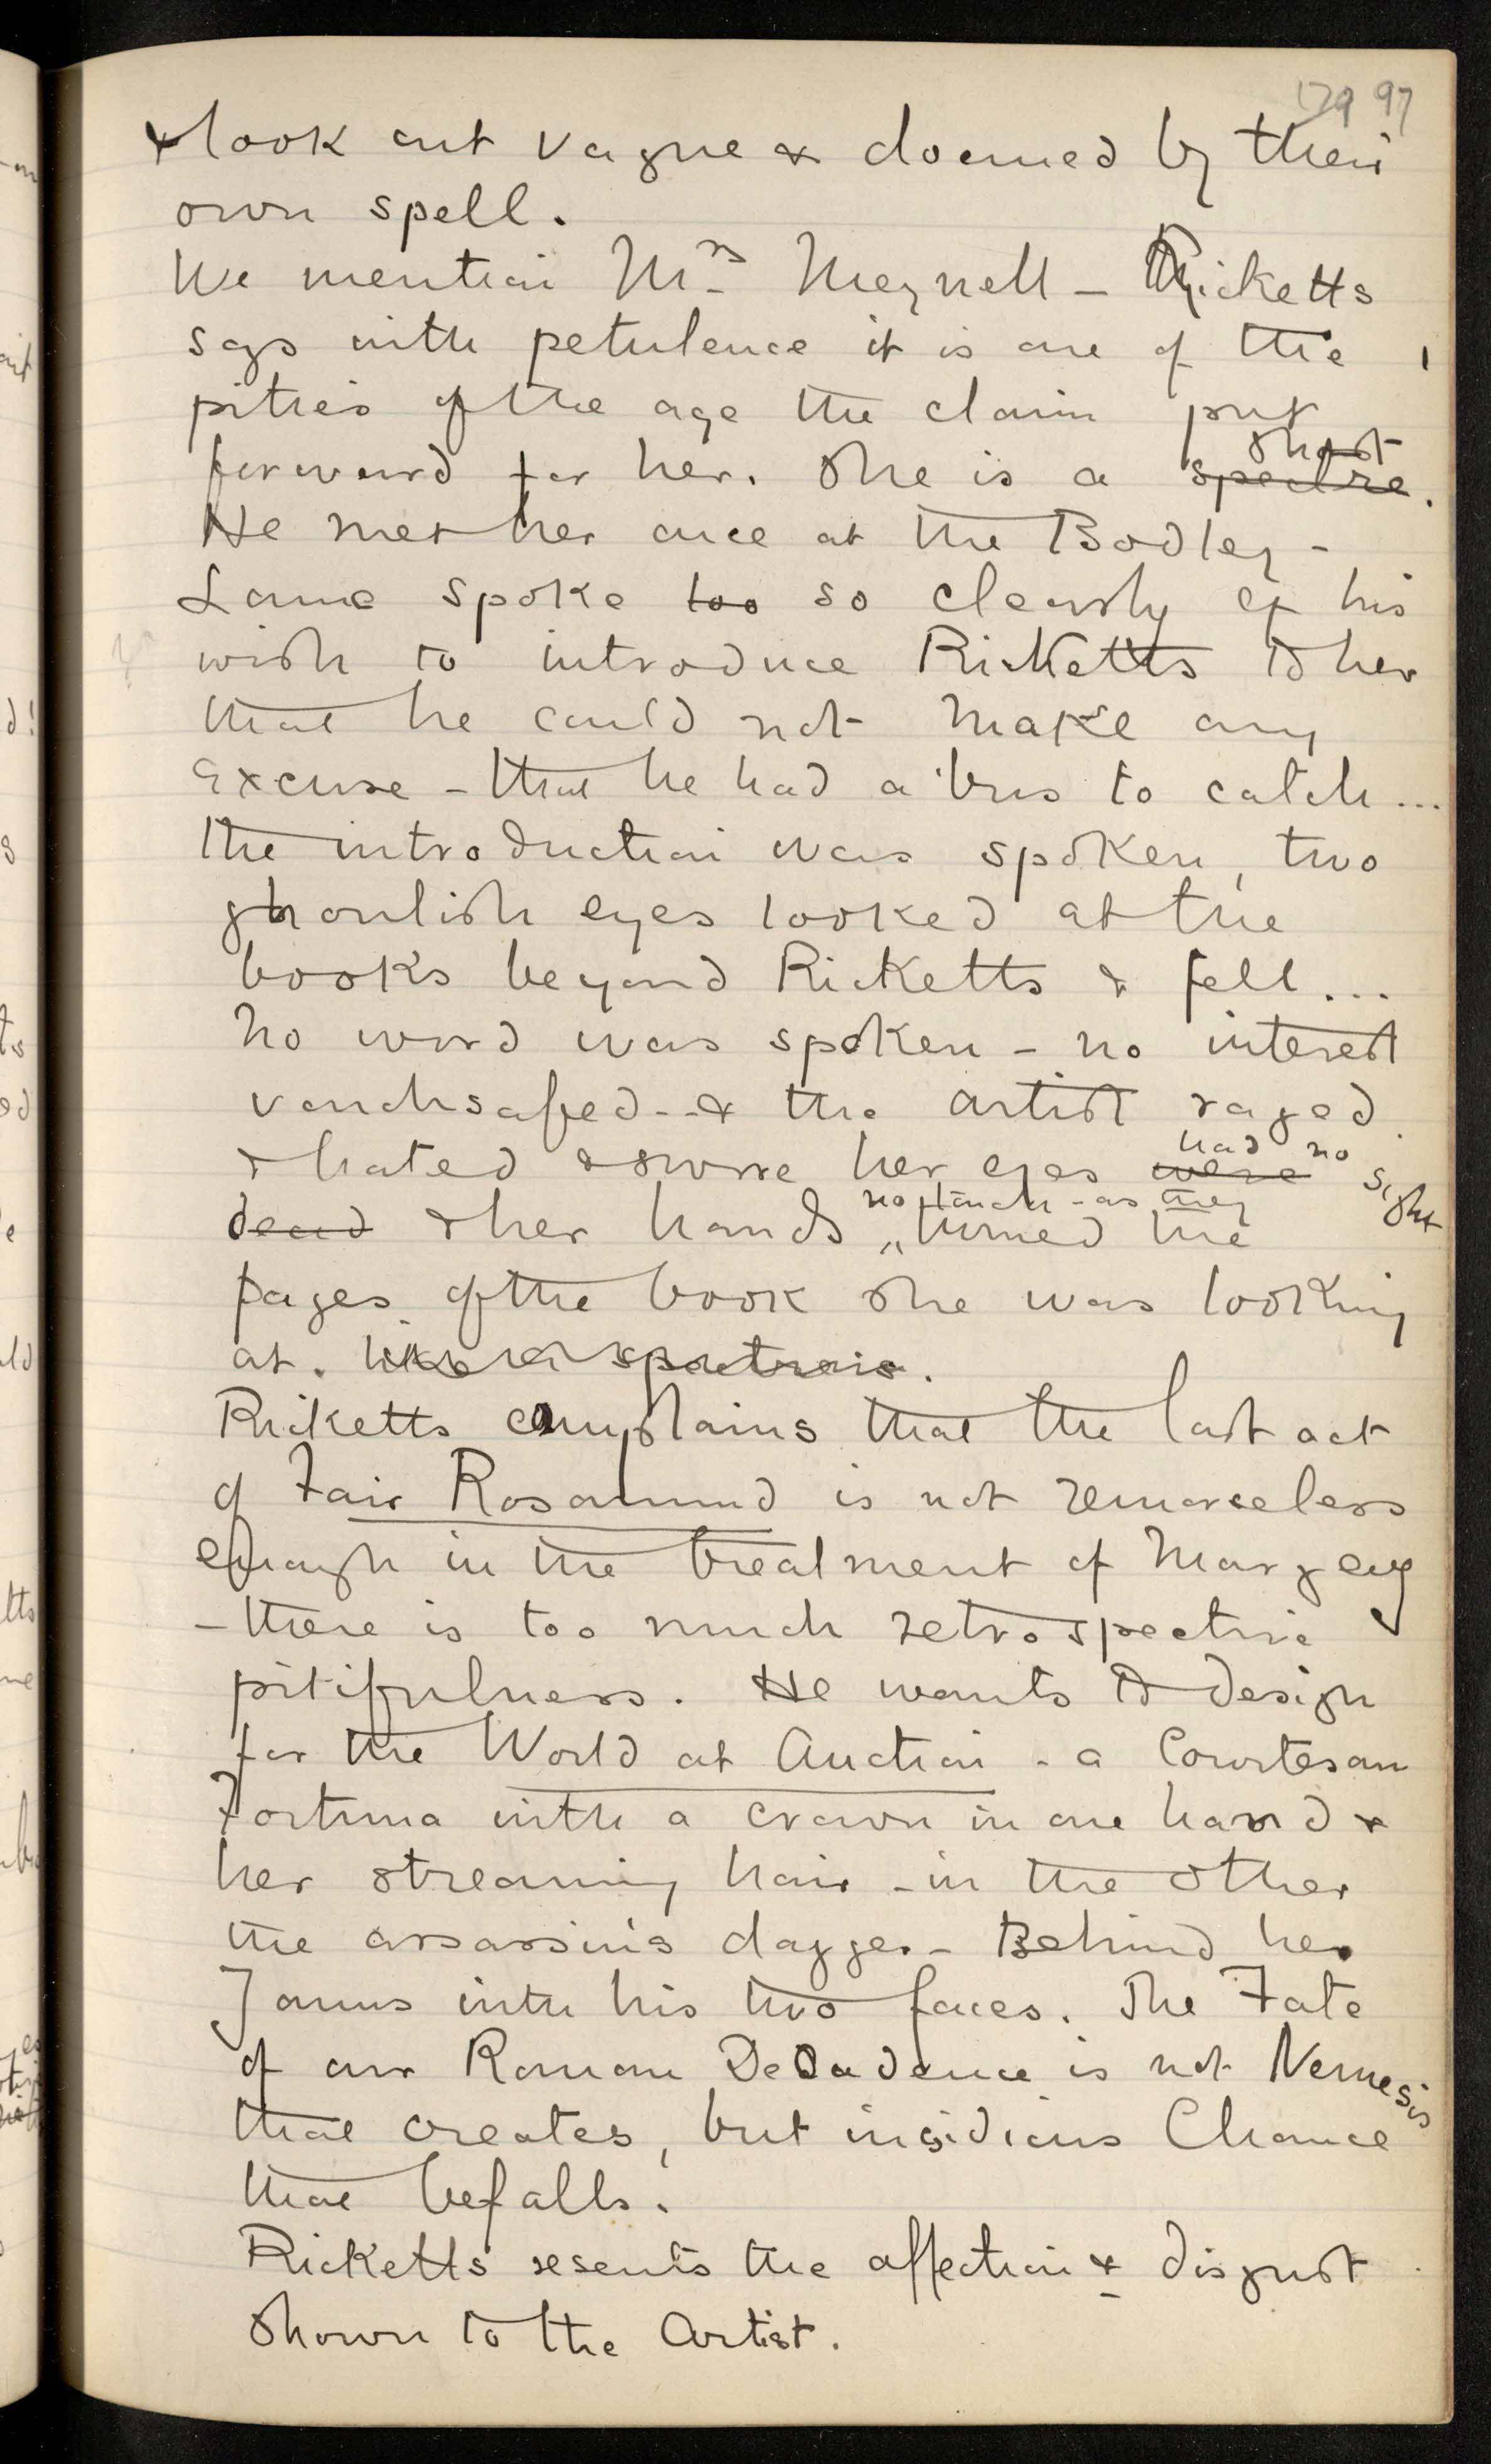 129 97
& look out vague & doomed by their
own spell.
We mention Mrs Meynell – Ricketts
says with petulence it is one of the
pities of the age the claim put
forward for her. She is a spectre.
He met her once at the Bodley –
Lane spoke too so clearly of his
wish to introduce Ricketts to her
that he could not make any
excuse – that he had a 'bus to catch...
The introduction was spoken, two
ghoulish eyes looked at the
books beyond Ricketts & fell...
No word was spoken – no interest
vouchsafed – & the artist raged
& hated & swore her eyes were had no sight
dead & her hands no touch – as they turned the
pages of the book she was looking
at. like a
Ricketts complains that the last act
of Fair Rosamund is not remorseless
enough in the treatment of Margery
– there is too much retrospective
pitifulness. He wants to design
for the World at Auction – a Courtesan
Fortuna with a crown in one hand &
her streaming hair – in the other
the assassin's dagger – Behind her
Janus with his two faces. The Fate
of our Roman Decadence is not Nemesis
that creates, but insidious Chance
that befalls.
Ricketts resents the affection & disgust
shown to the Artist.